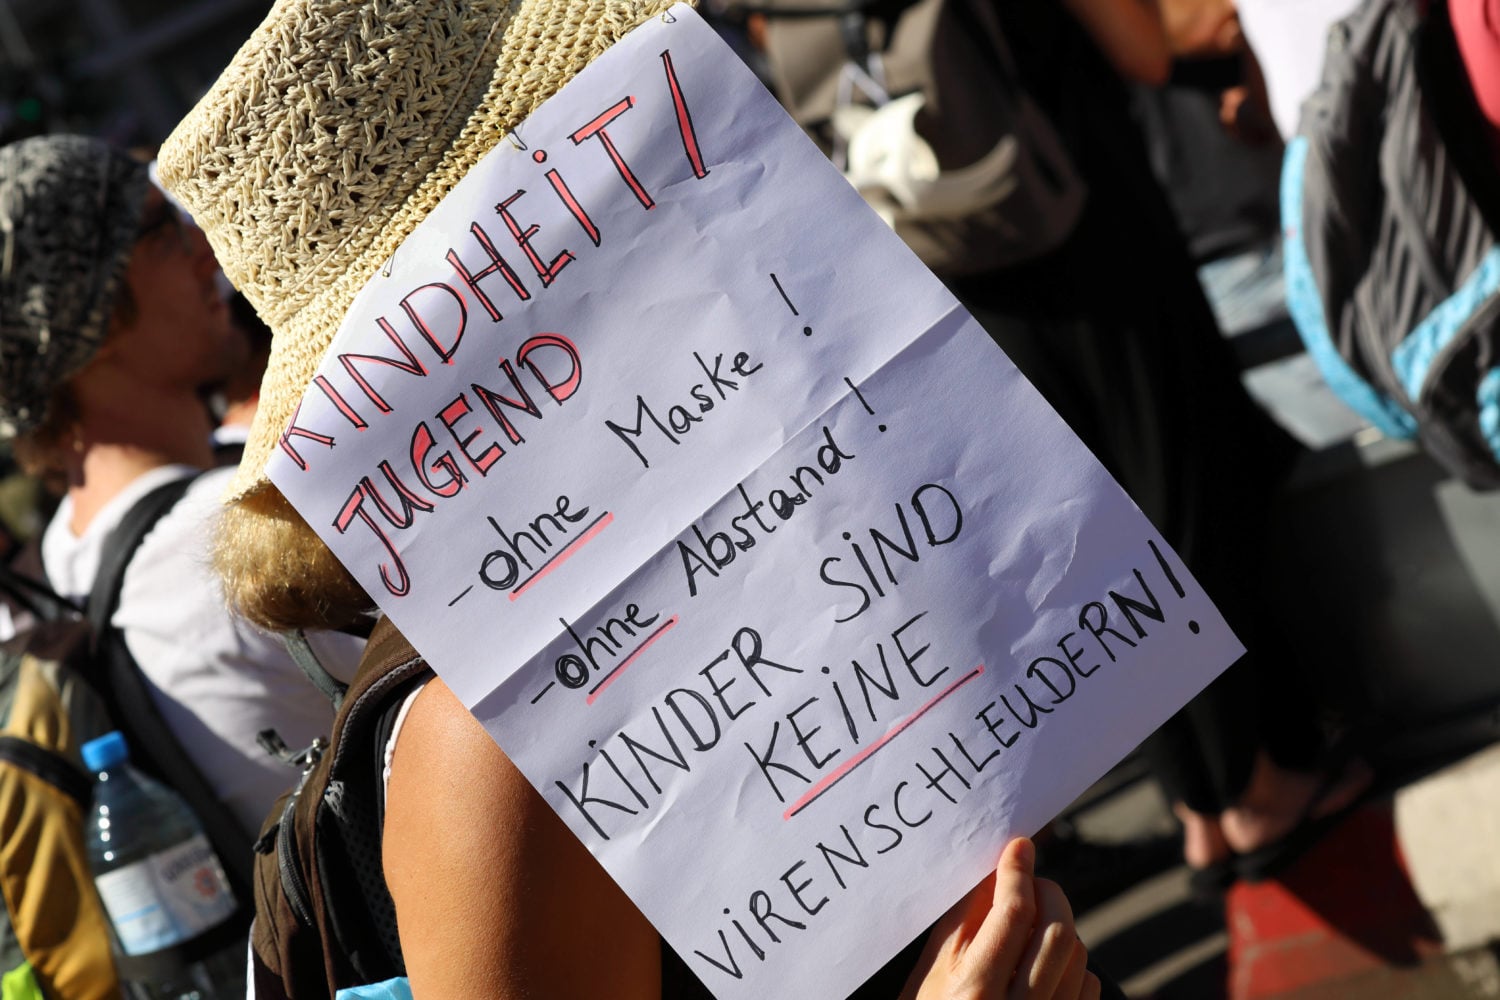 KINDHEIT/
JUGEND
- ohne Maske!
- ohne Abstand!
KINDER SIND
KEINE
VIRENSCHLEUDERN!